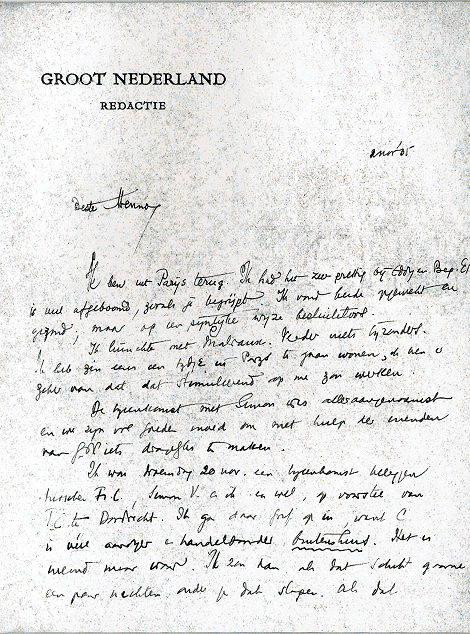 GROOT NEDERLAND
REDACTIE
2 nov '35
Beste Menno,
Ik ben uit Parijs terug. Ik had het zeer prettig bij Eddy en Bep. Er
is veel afgeboomd, zooals je begrijpt. Ik vond beide opgewekt en
gezond, maar op een wijze besluiteloos.
Ik lunchte met Malraux. Verder niets bijzonders.
Ik heb zin eens een tijdje in Parijs te gaan wonen, ik ben er
zeker van dat dat stimuleerend op me zou werken.
De bijeenkomst met Simon was alleraangenaamst
en we zijn vol goeden moed om met hulp de vrienden
van G.N. iets te maken.
Ik wou Woensdag 20 nov. een bijeenkomst beleggen
tusschen Fr. C., Simon V. en ik en wel, op voorstel van
te Dordrecht. Ik ga daar op in want C
is véél aardiger en handelbaarder buitenshuis. Het is
vreemd maar waar. Ik zou dan als dat schikt graag
een paar nachten onder je dak slapen. Als dat